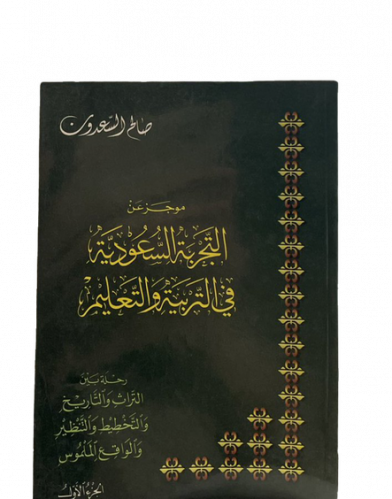 صالح السعدون
موجز عن
التجربة السعودية
في التربية والتعليم
رحلة بين
التراث والتاريخ
والتخطيط والتنظير
والواقع الملموس
الجزء الأول